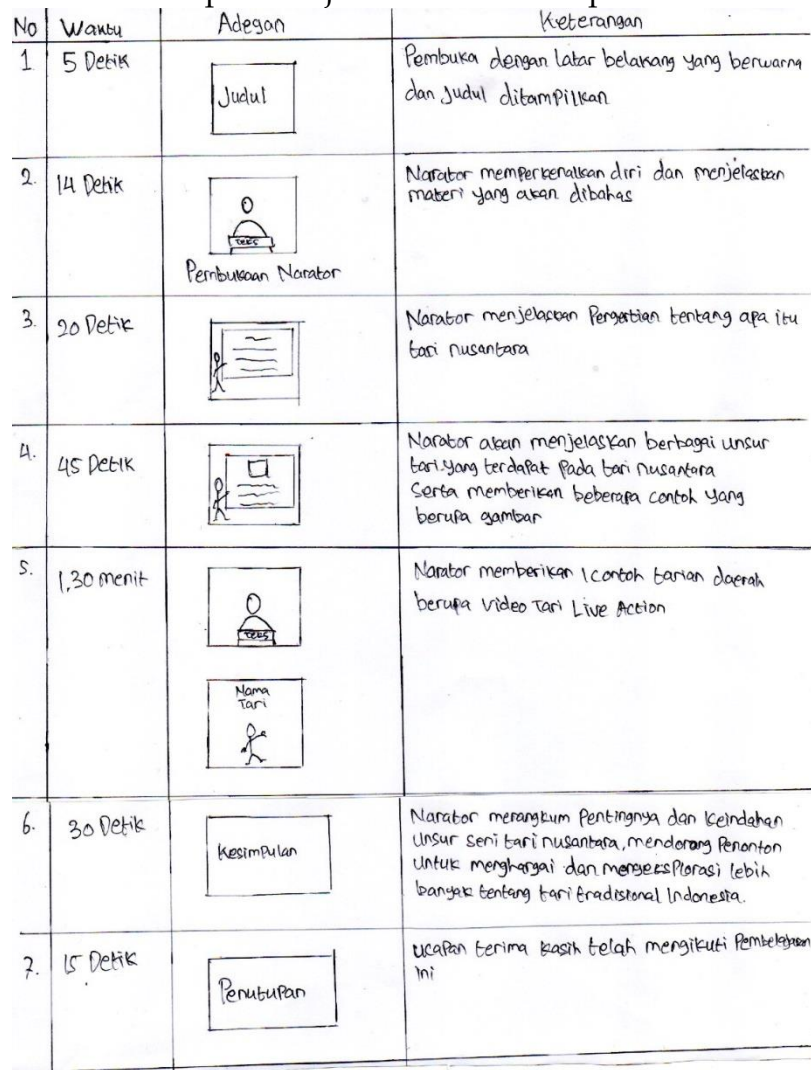 No Waktu Adegan Keterangan
1 5 Detik Judul Pembuka dengan latar belakang yang berwarna
dan Judul ditampilkan
2. 14 Detik Narator memperkenalkan diri dan menjelaskan
materi yang akan dibahas
TEKS
Pembukaan Narator
3. 20 Detik Narator menjelaskan Pengertian tentang apa itu
tari nusantara
4. 45 Detik Narator akan menjelaskan berbagai unsur
tari yang terdapat pada tari nusantara
Serta memberikan beberapa contoh yang
berupa gambar
5. 1,30 menit Narator memberikan 1 contoh tarian daerah
berupa Video Tari Live Action
TEKS
Nama
Tari
6. 30 Detik Kesimpulan Narator merangkum Pentingnya dan keindahan
unsur seni tari nusantara, mendorong Penonton
untuk menghargai dan mengeksplorasi lebih
banyak tentang tari tradisional Indonesia.
7. 15 Detik Penutupan ucapan terima kasih telah mengikuti Pembelajaran
ini